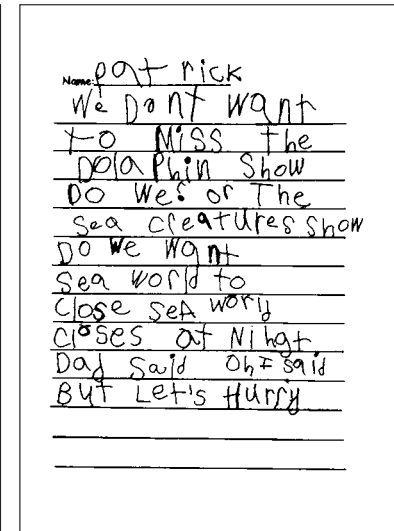 Name: patrick
We Dont want
to Miss the
Dolaphin Show
Do We? or The
Sea creatures show
Do We Want
Sea world to
Close SeA world
Closes at Nihgt
Dad Said Oh I said
But Let's Hurry